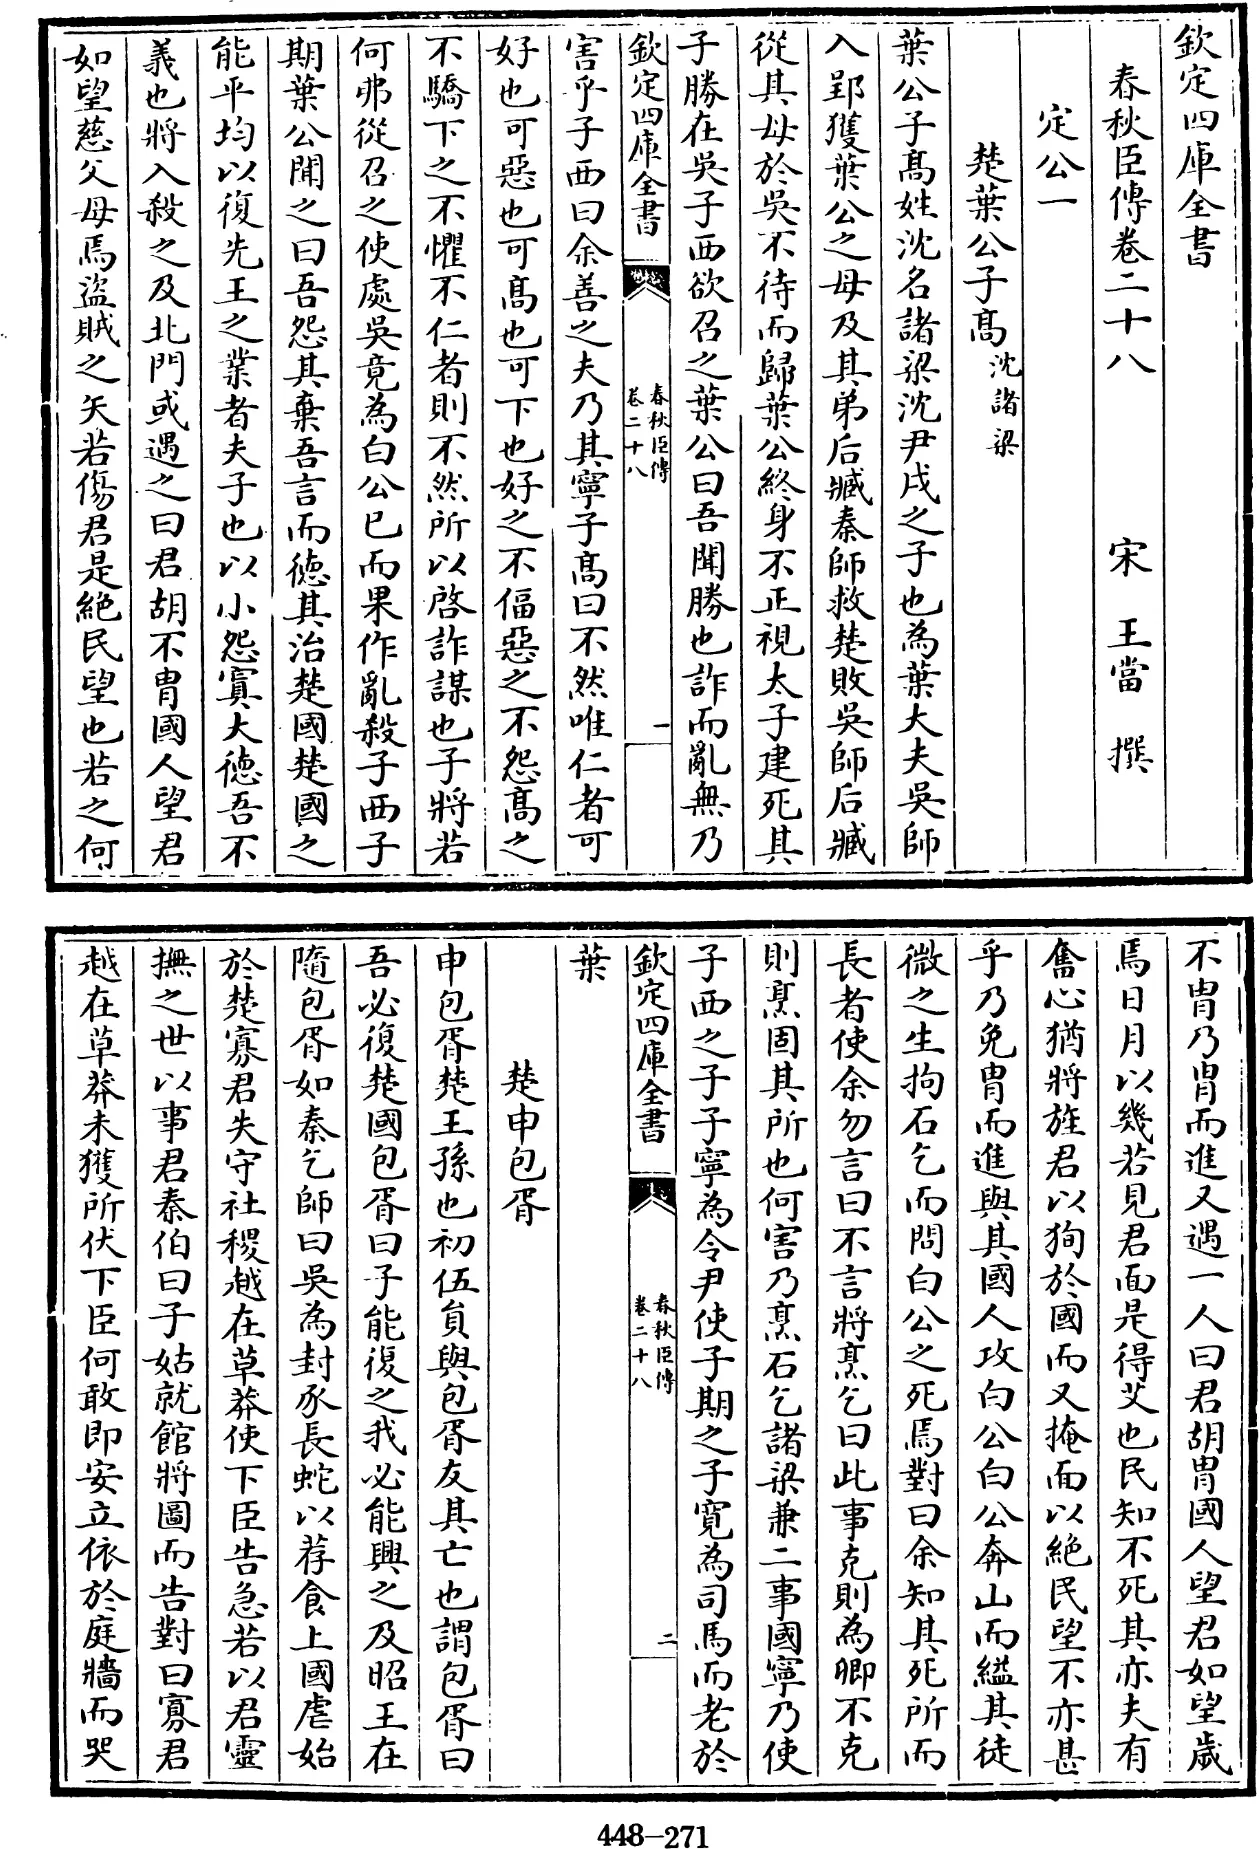 欽定四庫全書
春秋臣傳卷二十八
宋 王當 撰
定公一
楚葉公子髙沈諸梁
葉公子髙姓沈名諸梁沈尹戌之子也為葉大夫吳師
入郢獲葉公之母及其弟后臧秦師救楚敗吳師后臧
從其母於吳不待而歸葉公終身不正視太子建死其
子勝在吳子西欲召之葉公曰吾聞勝也詐而亂無乃
欽定四庫全書
春秋臣傳
卷二十八
一
害乎子西曰余善之夫乃其寧子髙曰不然唯仁者可
好也可惡也可髙也可下也好之不偪惡之不怨髙之
不驕下之不懼不仁者則不然所以啓詐謀也子將若
何弗從召之使處吳竟為白公已而果作亂殺子西子
期葉公聞之曰吾怨其棄吾言而徳其治楚國楚國之
能平均以復先王之業者夫子也以小怨寘大徳吾不
義也將入殺之及北門或遇之曰君胡不胄國人望君
如望慈父母焉盜賊之矢若傷君是絶民望也若之何
不胄乃胄而進又遇一人曰君胡胄國人望君如望歳
焉日月以幾若見君面是得艾也民知不死其亦夫有
奮心猶將旌君以狥於國而又掩面以絶民望不亦甚
乎乃免胄而進與其國人攻白公白公奔山而縊其徒
微之生拘石乞而問白公之死焉對曰余知其死所而
長者使余勿言曰不言將烹乞曰此事克則為卿不克
則烹固其所也何害乃烹石乞諸梁兼二事國寧乃使
子西之子子寧為令尹使子期之子寛為司馬而老於
欽定四庫全書
春秋臣傳
卷二十八
二
葉
楚申包胥
申包胥楚王孫也初伍員與包胥友其亡也謂包胥曰
吾必復楚國包胥曰子能復之我必能興之及昭王在
隨包胥如秦乞師曰吳為封豕長蛇以荐食上國虐始
於楚寡君失守社稷越在草莽使下臣告急若以君靈
撫之世以事君秦伯曰子姑就館將圖而告對曰寡君
越在草莽未獲所伏下臣何敢即安立依於庭牆而哭
448-271